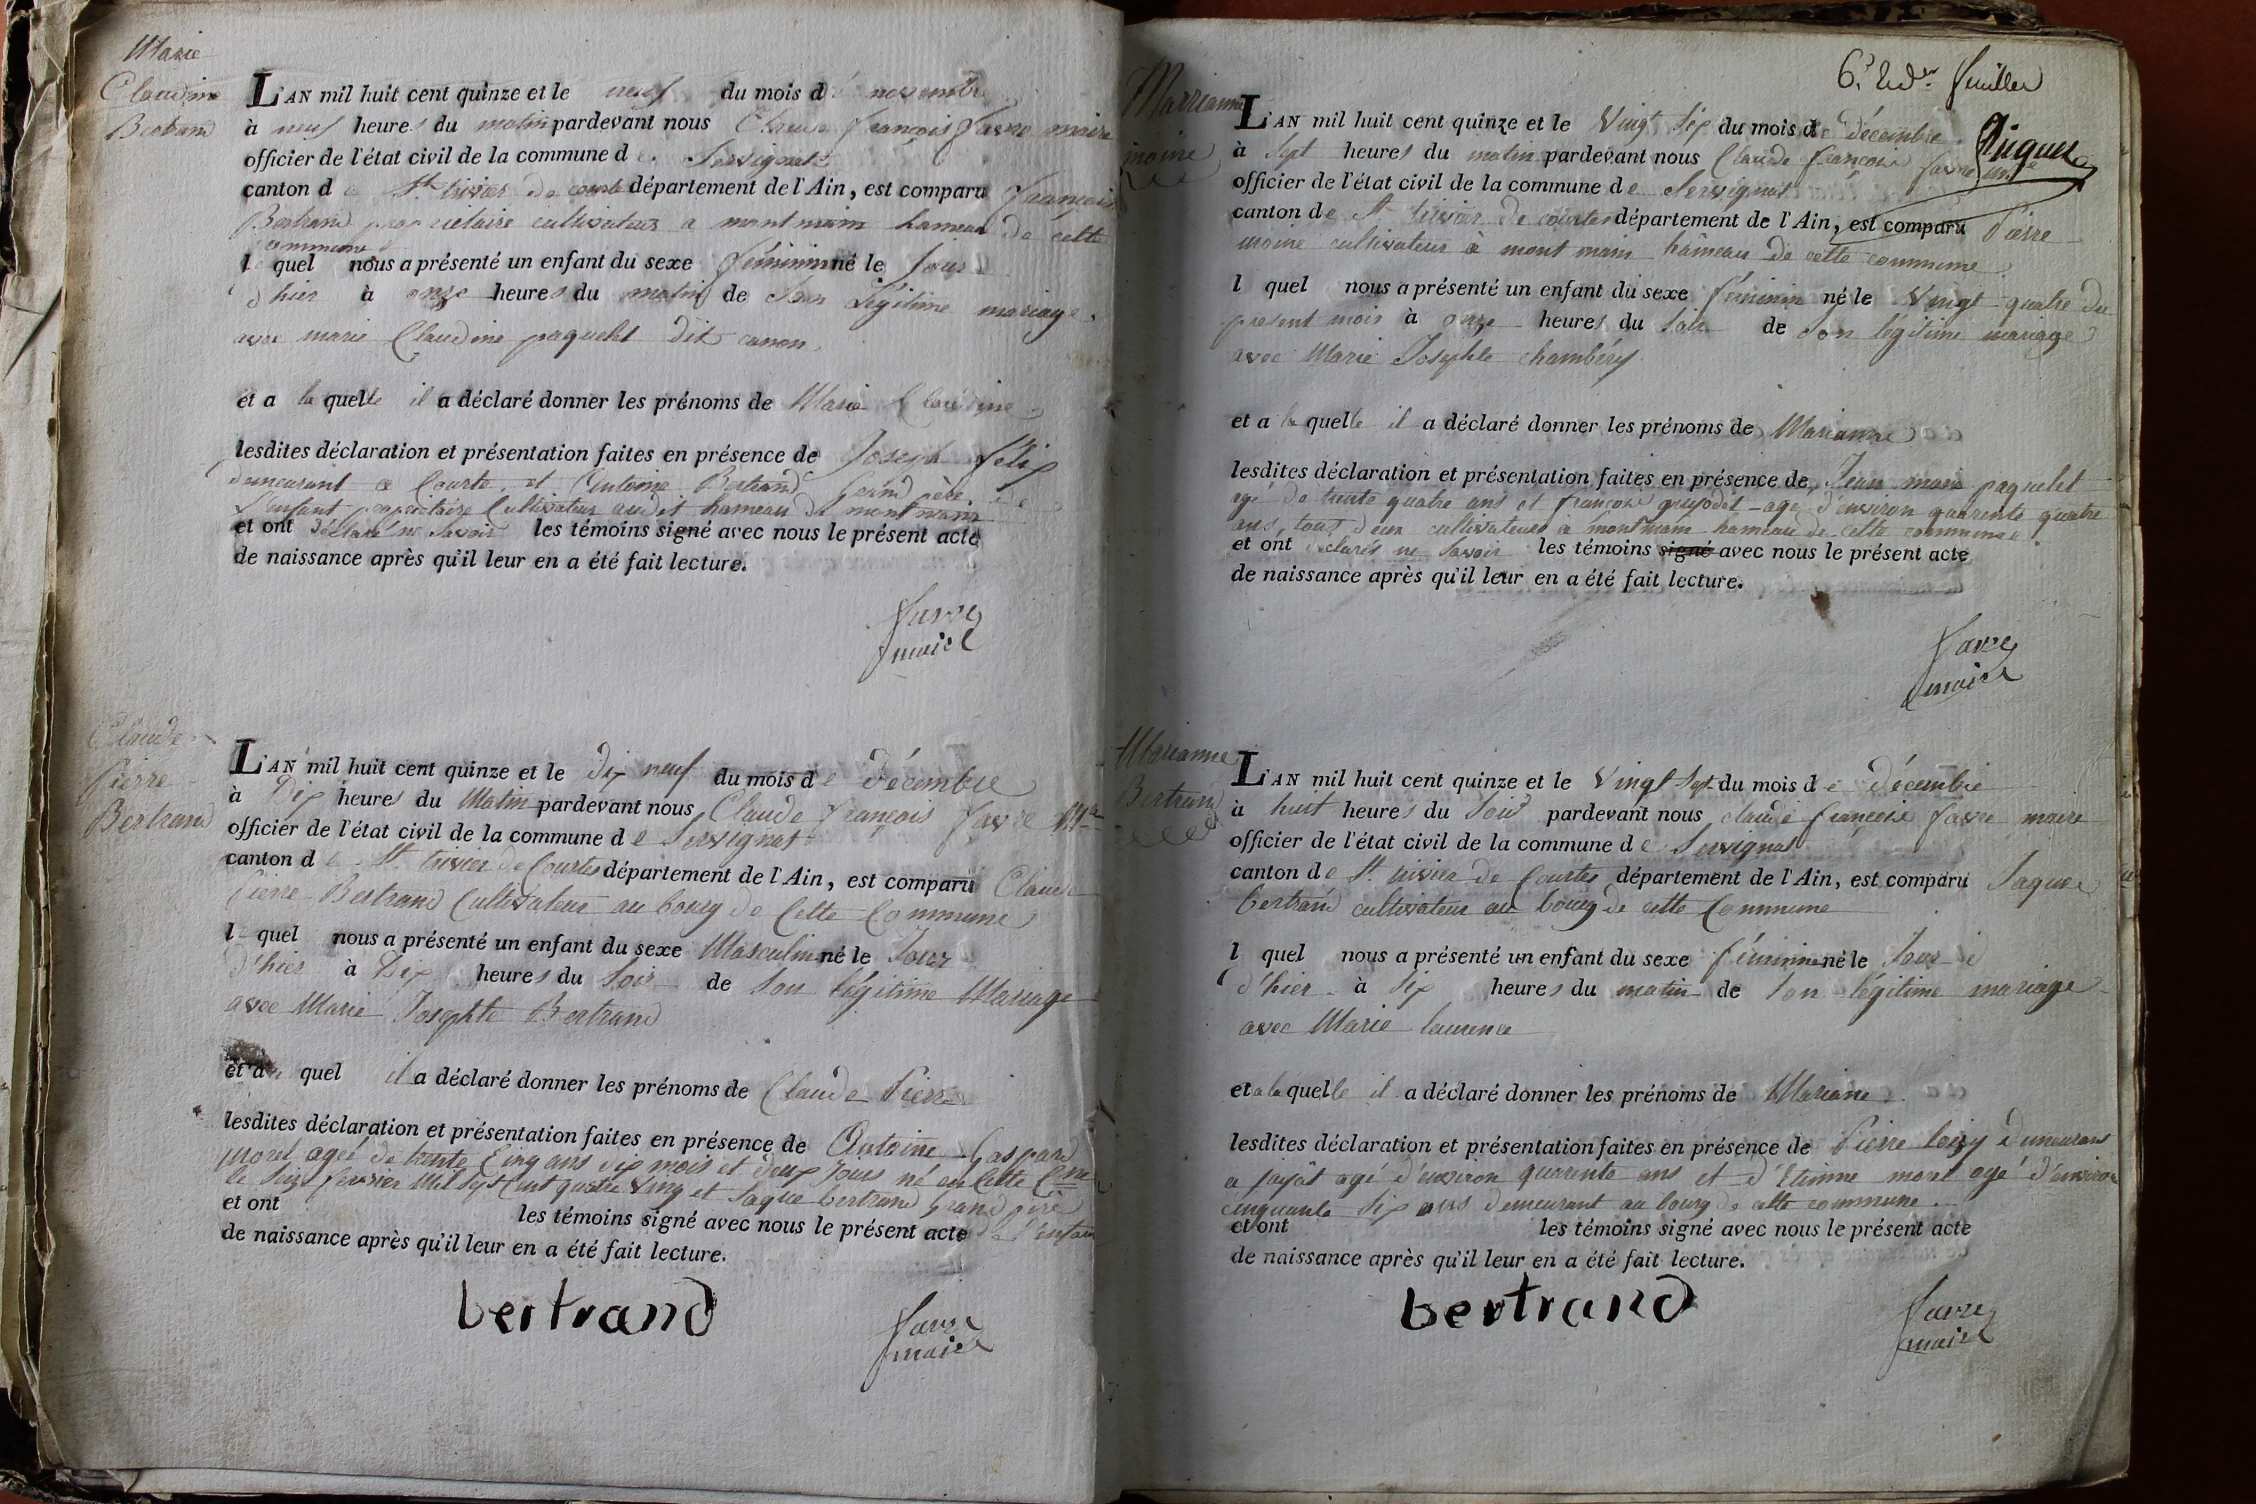 Marie
Claudine
Bertrand
L'AN mil huit cent quinze et le neuf du mois de novembre
à neuf heures du matin pardevant nous Claude françois favre maire
officier de l'état civil de la commune de Servignat
canton de St trivier de courtes département de l'Ain, est comparu françois
Bertrand propriétaire cultivateur a montmain hameau de cette
commune
lequel nous a présenté un enfant du sexe féminin né le jour
d'hier à onze heures du matin de son légitime mariage
avec marie Claudine paquelet dit canon
et a laquelle il a déclaré donner les prénoms de Marie Claudine
lesdites déclaration et présentation faites en présence de Joseph félix
demeurant a Courte et Antoine Bertrand grand père de
l'enfant propriétaire Cultivateur audit hameau de montmain
et ont déclaré ne savoir les témoins signé avec nous le présent acte
de naissance après qu'il leur en a été fait lecture.
favre
maire
Claude
Pierre
Bertrand
L'AN mil huit cent quinze et le dix neuf du mois de décembre
à Dix heures du Matin pardevant nous Claude françois favre Mre
officier de l'état civil de la commune de Servignat
canton de St trivier de Courtes département de l'Ain, est comparu Claude
Pierre Bertrand Cultivateur au bourg de Cette Commune
lequel nous a présenté un enfant du sexe Masculin né le Jour
d'hier à Dix heures du Soir de Son légitime Mariage
avec Marie Josephte Bertrand
et a quel il a déclaré donner les prénoms de Claude Pierre
lesdites déclaration et présentation faites en présence de Antoine Gaspard
morel agé de trente Cinq ans dix mois et deux Jours né en Cette Cne
le fevrier Mil Sept Cent quatre Ving et Jaque bertrand grand père
et ont les témoins signé avec nous le présent acte de l'enfant
de naissance après qu'il leur en a été fait lecture.
bertrand
favre
maire
6. feuillet
Marrianne
moine
L'AN mil huit cent quinze et le Vingt Six du mois de décembre
à Sept heures du matin pardevant nous Claude françois favre
officier de l'état civil de la commune de Servignat
canton de St trivier de courtes département de l'Ain, est comparu Pierre
moine cultivateur à mont main hameau de cette commune
lequel nous a présenté un enfant du sexe féminin né le Vingt quatre du
present mois à onze heures du Soir de Son légitime mariage
avec Marie Josephte chambéry
et a laquelle il a déclaré donner les prénoms de Marianne
lesdites déclaration et présentation faites en présence de Jean marie paquelet
agé de trente quatre ans et françois agé d'environ quarente quatre
ans, tous deux cultivateurs a montmain hameau de cette commune
et ont déclarés ne Savoir les témoins signé avec nous le présent acte
de naissance après qu'il leur en a été fait lecture.
favre
maire
Marianne
Bertrand
L'AN mil huit cent quinze et le Vingt Sept du mois de décembre
à huit heures du Soir pardevant nous claude françois favre maire
officier de l'état civil de la commune de Servignat
canton de St trivier de Courtes département de l'Ain, est comparu Jaque
bertrand cultivateur au bourg de cette Commune
lequel nous a présenté un enfant du sexe féminin né le Jour
d'hier à Six heures du matin de Son légitime mariage
avec Marie laurence
et a laquelle il a déclaré donner les prénoms de Mariane
lesdites déclaration et présentation faites en présence de Pierre loisy demeurant
a jayat agé d'environ quarente ans et d'Etienne morel agé d'environ
cinquante Six ans demeurant au bourg de cette commune
et ont les témoins signé avec nous le présent acte
de naissance après qu'il leur en a été fait lecture.
bertrand
favre
maire